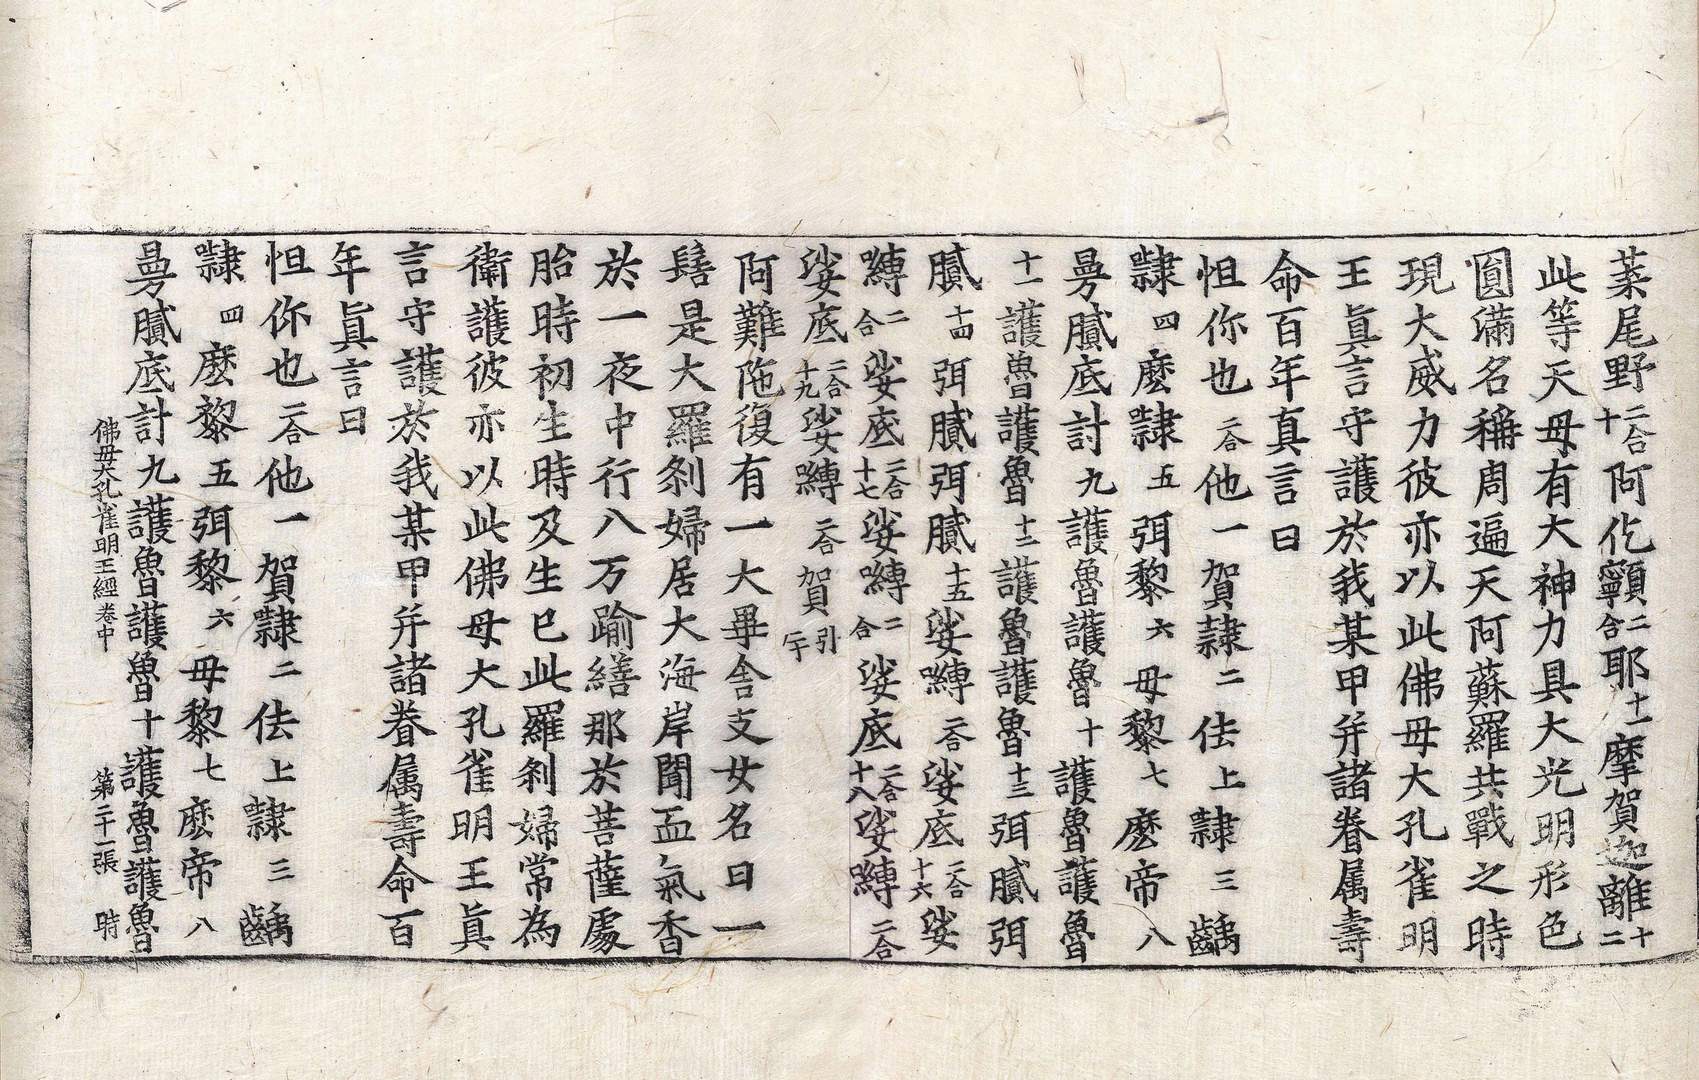 葇尾野二合十阿仡𩕳二合耶十一摩賀迦離十二
此等天母有大神力具大光明形色
圓滿名稱周遍天阿蘇羅共戰之時
現大威力彼亦以此佛母大孔雀明
王真言守護於我某甲并諸眷属壽
命百年真言曰
怛你也二合他一賀隷二佉上隷三齲
隷四麽隷五弭黎六母黎七麽帝八
曼膩底討九護魯護魯十護魯護魯
十一護魯護魯十二護魯護魯十三弭膩弭
膩十四弭膩弭膩十五娑嚩二合娑底二合十六娑
嚩二合娑底二合十七娑嚩二合娑底二合十八娑嚩二合
娑底二合十九娑嚩二合賀引二十
阿難陁復有一大畢舍支女名曰一
髻是大羅剎婦居大海岸聞血氣香
於一夜中行八万踰繕那於菩薩處
胎時初生時及生已此羅剎婦常為
衛護彼亦以此佛母大孔雀明王真
言守護於我某甲并諸眷属壽命百
年真言曰
怛你也二合他一賀隷二佉上隷三齲
隷四麽黎五弭黎六母黎七麽帝八
曼膩底討九護魯護魯十護魯護魯
佛母大孔雀明王經卷中 第二十一張 時